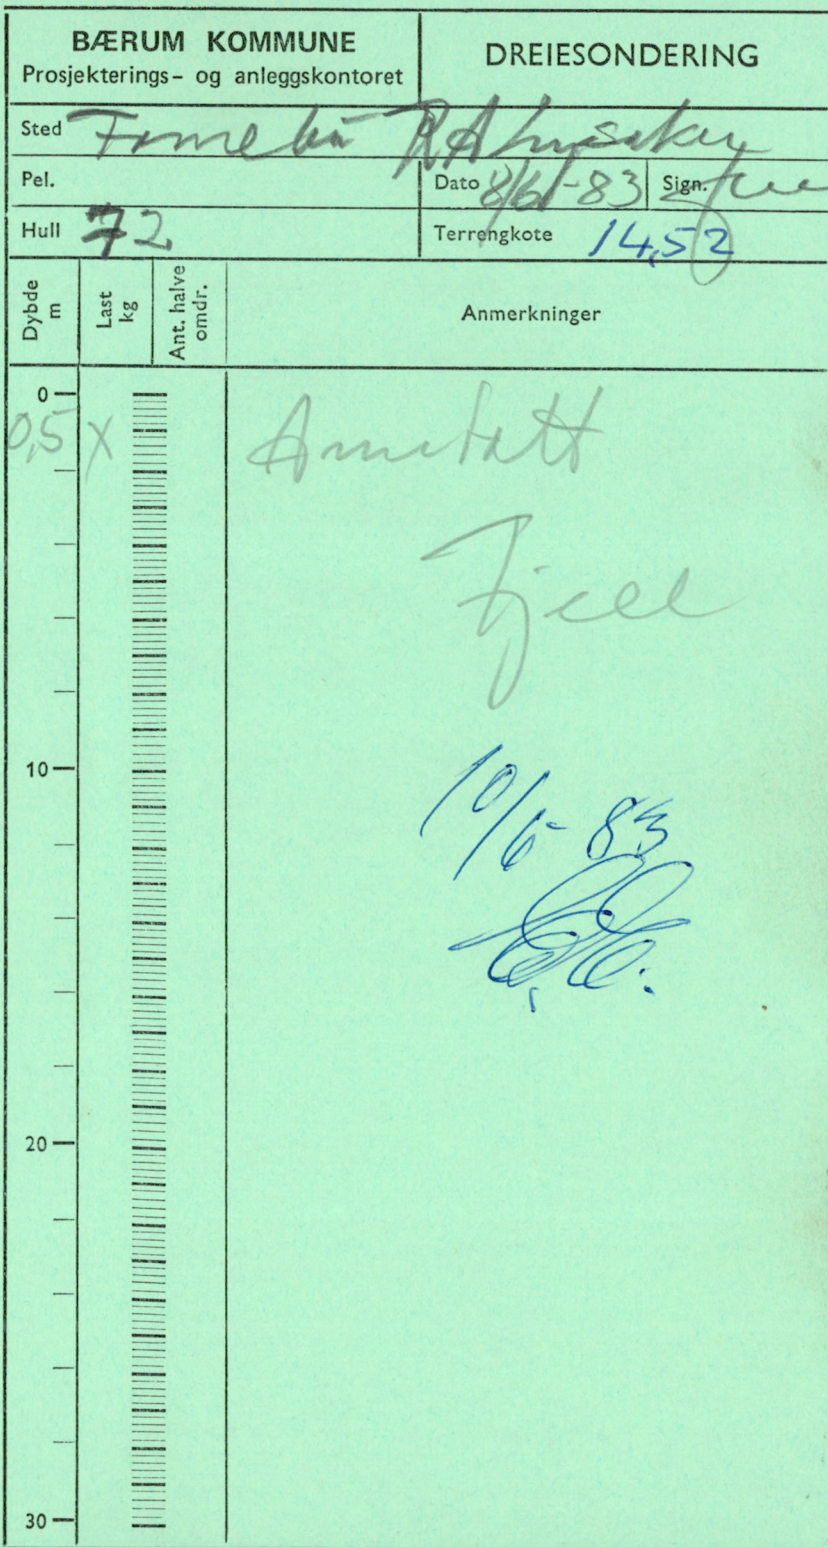 BÆRUM KOMMUNE
Prosjekterings- og anleggskontoret
DREIESONDERING
Sted Fornebu
Pel.
Dato 8/6-83 Sign.
Hull 72
Terrengkote 14,52
Dybde m
Last kg
Ant. halve omdr.
Anmerkninger
0
0,5 X
Antatt
Fjell
10
10/6-83
20
30